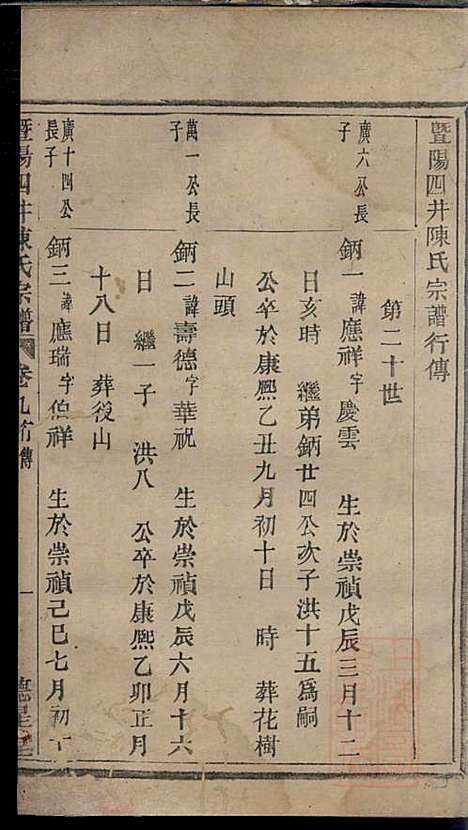 暨陽四井陳氏宗譜行傳
第二十世
廣六公長子
鈵一諱應祥字慶雲 生於崇禎戊辰三月十二
日亥時 繼弟鈵廿四公次子洪十五爲嗣
公卒於康熙乙丑九月初十日 時 葬花樹
山頭
萬一公長子
鈵二諱壽德字華祝 生於崇禎戊辰六月十六
日 繼一子 洪八 公卒於康熙乙卯正月
十八日 葬後山
廣十四公長子
鈵三諱應瑞字伯祥 生於崇禎己巳七月初
暨陽四井陳氏宗譜 卷九行傳 一